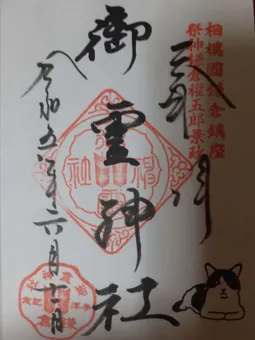 相模國鎌倉鎮座
祭神鎌倉権五郎景政
奉拝
御霊神社
令和五年六月十一日